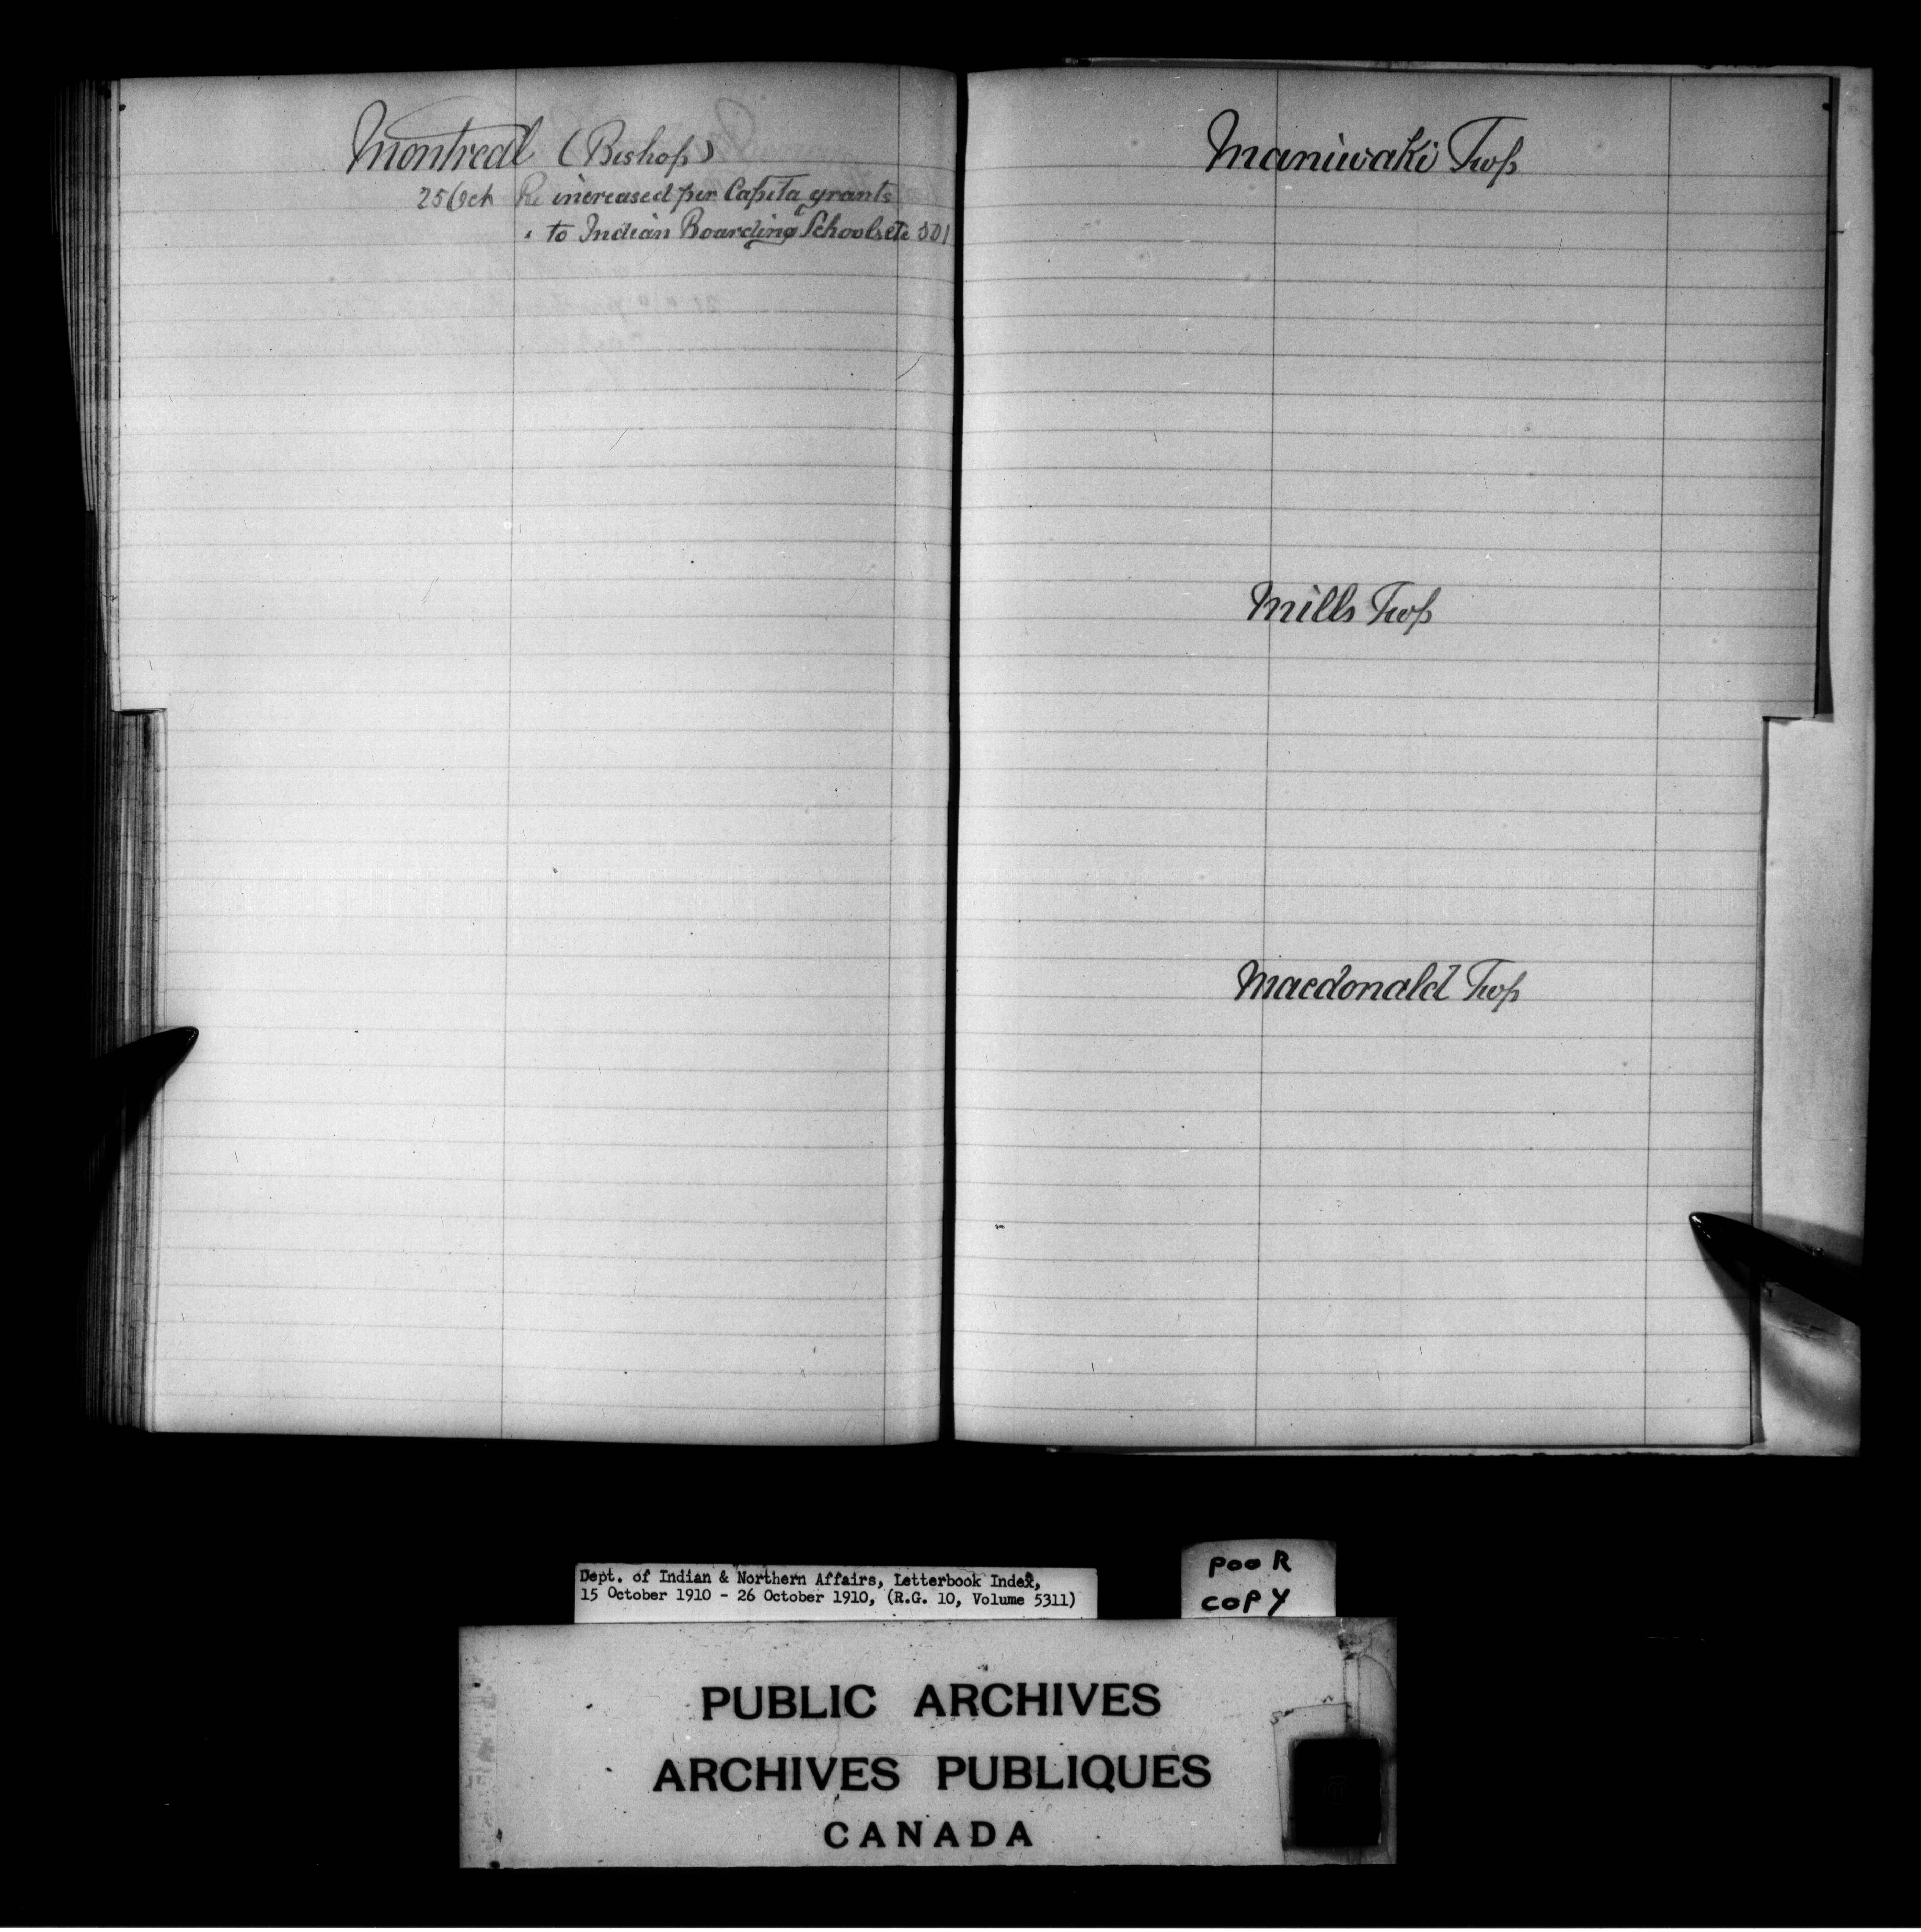 Montreal (Bishop)
25 Oct Re increased per Capita grants
to Indian Boarding Schools etc 501
Maniwaki Twp
Mills Twp
Macdonald Twp
Dept. of Indian & Northern Affairs, Letterbook Index,
15 October 1910 - 26 October 1910, (R.G. 10, Volume 5311)
POOR
COPY
PUBLIC ARCHIVES
ARCHIVES PUBLIQUES
CANADA